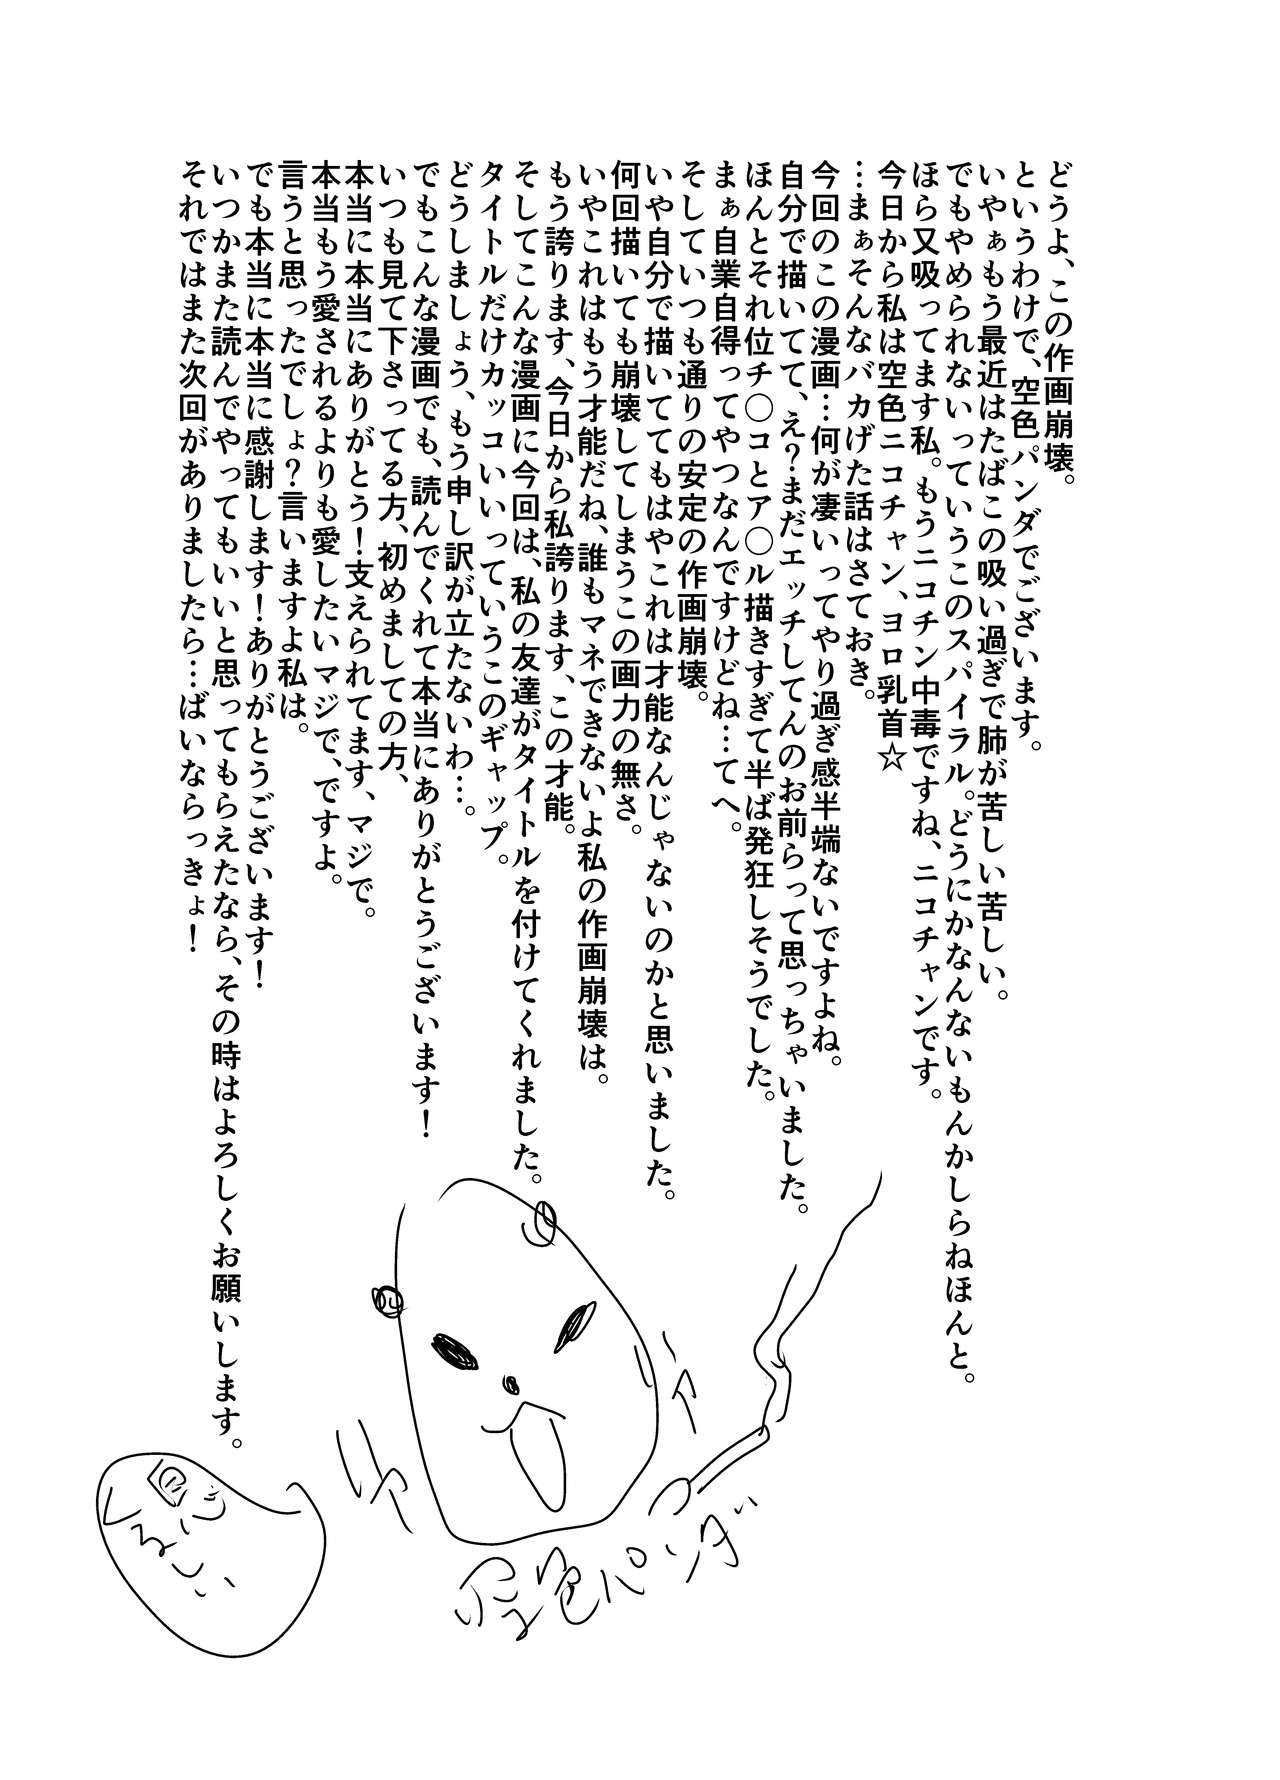 どうよ、この作画崩壊。
というわけで、空色パンダでございます。
いやぁもう最近はたばこの吸い過ぎで肺が苦しい苦しい。
でもやめられないっていうこのスパイラル。どうにかなんないもんかしらねほんと。
ほら又吸ってます私。もうニコチン中毒ですね、ニコチャンです。
今日から私は空色ニコチャン、ヨロ乳首☆
…まぁそんなバカげた話はさておき。
今回のこの漫画…何が凄いってやり過ぎ感半端ないですよね。
自分で描いてて、え？まだエッチしてんのお前らって思っちゃいました。
ほんとそれ位チ〇コとア〇ル描きすぎて半ば発狂しそうでした。
まぁ自業自得ってやつなんですけどね…てへ。
そしていつも通りの安定の作画崩壊。
いや自分で描いててもはやこれは才能なんじゃないのかと思いました。
何回描いても崩壊してしまうこの画力の無さ。
いやこれはもう才能だね、誰もマネできないよ私の作画崩壊は。
もう誇ります、今日から私誇ります、この才能。
そしてこんな漫画に今回は、私の友達がタイトルを付けてくれました。
タイトルだけカッコいいっていうこのギャップ。
どうしましょう、もう申し訳が立たないわ…。
でもこんな漫画でも、読んでくれて本当にありがとうございます！
いつも見て下さってる方、初めましての方、
本当に本当にありがとう！支えられてます、マジで。
本当もう愛されるよりも愛したいマジで、ですよ。
言うと思ったでしょ？言いますよ私は。
でも本当に本当に感謝します！ありがとうございます！
いつかまた読んでやってもいいと思ってもらえたなら、その時はよろしくお願いします。
それではまた次回がありましたら…ばいならっきょ！
空色パンダ